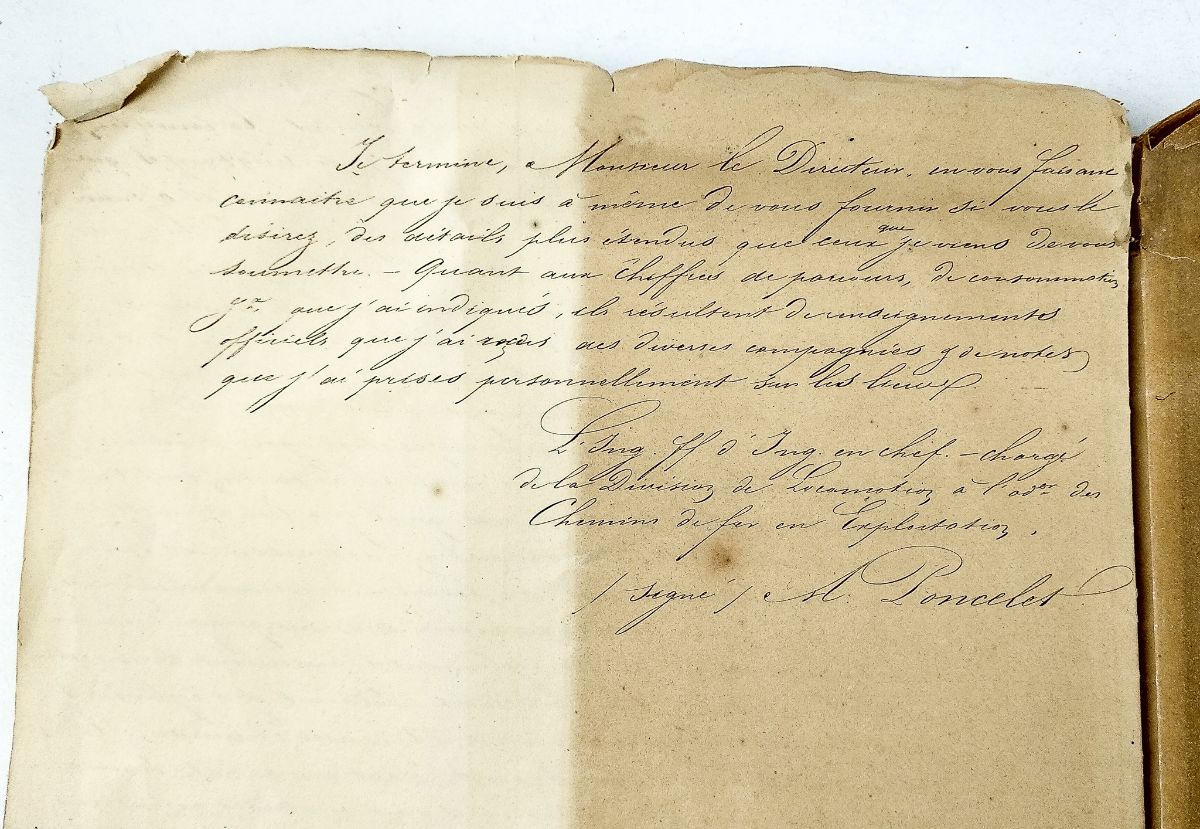 Je termine, Monsieur le Directeur, en vous faisant
connaitre que je suis à même de vous fournir si vous le
désirez, des détails plus étendus que ceux que je viens de vous
soumettre. - Quant aux Chiffres de parcours, de consommation
que j'ai indiqués, ils résultent de renseignements
officiels que j'ai des diverses compagnies & de notes
que j'ai prises personnellement sur les lieux
L'Ing. ff d'Ing. en chef. - chargé
de la Division de Locomotion à l'adon des
Chemins de fer en Exploitation.
/ signé / M. Poncelet